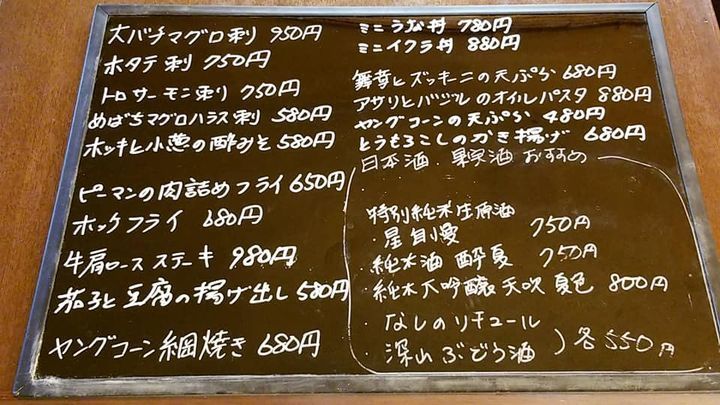 大バチマグロ刺 950円
ホタテ刺 750円
トロサーモン刺り 750円
めばちマグロハラス刺 580円
ホッキと小葱の酢みそ 580円
ピーマンの肉詰めフライ 650円
ホッケフライ 680円
牛肩ロースステーキ 980円
茄子と豆腐の揚げ出し 580円
ヤングコーン網焼き 680円
ミニうな丼 780円
ミニイクラ丼 880円
舞茸とズッキーニの天ぷら 680円
アサリとバジルのオイルパスタ 880円
ヤングコーンの天ぷら 480円
とうもろこしのかき揚げ 680円
日本酒・果実酒 おすすめ
特別純米生原酒
・星自慢 750円
・純米酒 酔夏 750円
・純米大吟醸 天吹 夏色 800円
・なしのリキュール
・深山ぶどう酒 ) 各550円